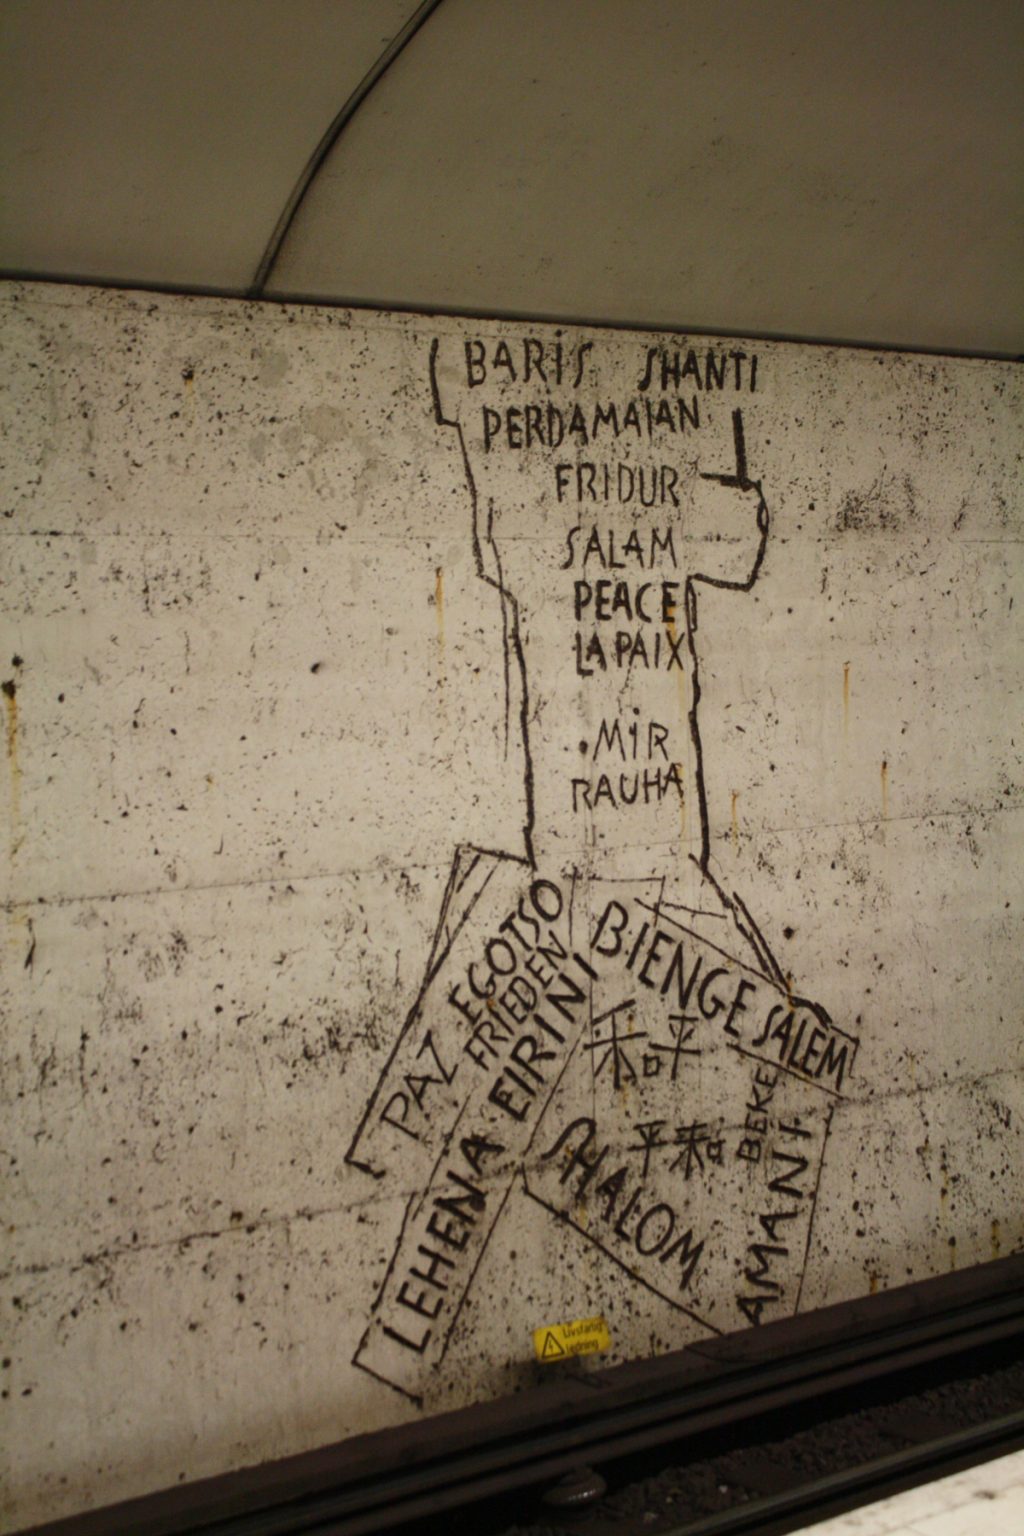 BARIS SHANTI
PERDAMAIAN
FRIDUR
SALAM
PEACE
LA PAIX
MIR
RAUHA
EGOTSO
PAZ
FRIEDEN
EIRINI
LEHENA
BIENGE
SALEM
和平
平和
BEKE
SHALOM
AMANI
Livsfarlig
ledning